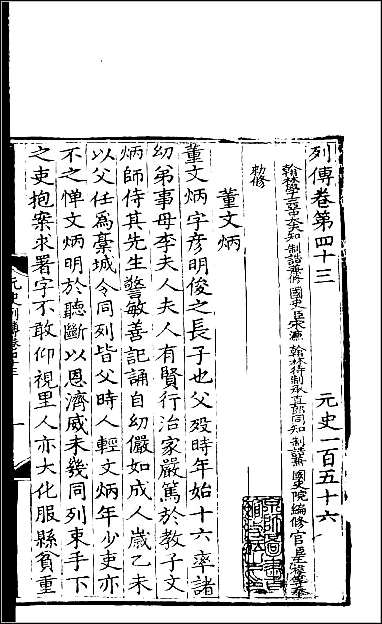 列傳卷第四十三　元史一百五十六
翰林學士亞中大夫知制誥兼修國史臣宋濂翰林待制承直郎同知制誥兼國史院編修官臣王禕等奉
勑修
董文炳
董文炳字彥明俊之長子也父歿時年始十六率諸
幼弟事母李夫人夫人有賢行治家嚴篤於教子文
炳師侍其先生警敏善記誦自幼儼如成人歲乙未
以父任為藁城令同列皆父時人輕文炳年少吏亦
不之憚文炳明於聽斷以恩濟威未幾同列束手下
之吏抱案求署字不敢仰視里人亦大化服縣貧重
元史列傳卷四十三
一